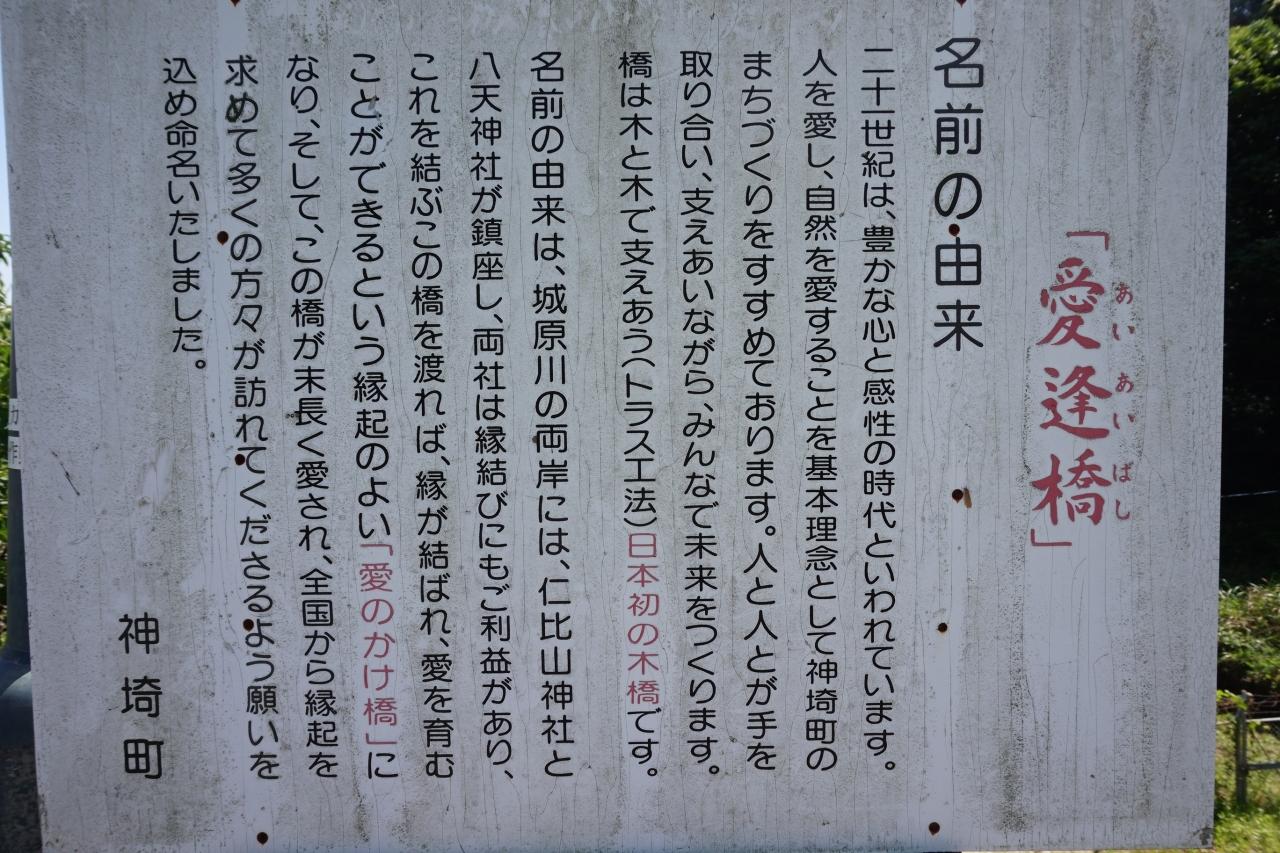 「愛逢橋」
あい あい ばし
名前の由来
二十一世紀は、豊かな心と感性の時代といわれています。
人を愛し、自然を愛することを基本理念として神埼町の
まちづくりをすすめております。人と人とが手を
取り合い、支えあいながら、みんなで未来をつくります。
橋は木と木で支えあう(トラス工法)日本初の木橋です。
名前の由来は、城原川の両岸には、仁比山神社と
八天神社が鎮座し、両社は縁結びにもご利益があり、
これを結ぶこの橋を渡れば、縁が結ばれ、愛を育む
ことができるという縁起のよい「愛のかけ橋」に
なり、そして、この橋が末長く愛され、全国から縁起を
求めて多くの方々が訪れてくださるよう願いを
込め命名いたしました。
神埼町